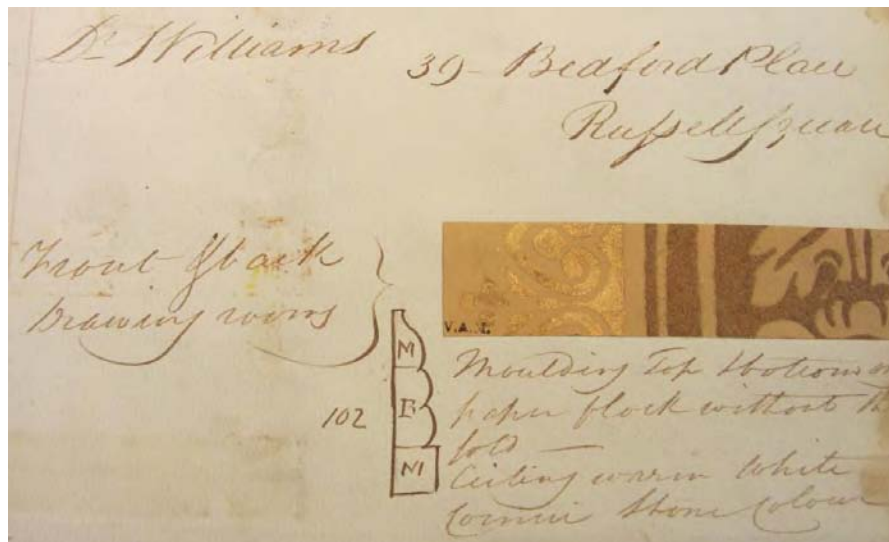 Dr Williams
39 - Bedford Place
Russell Square
Front & back
Drawing rooms
V.A.M.
M
B
102
M
Moulding Top & bottom
paper flock without
Ceiling warm White
Cornice Stone Colour